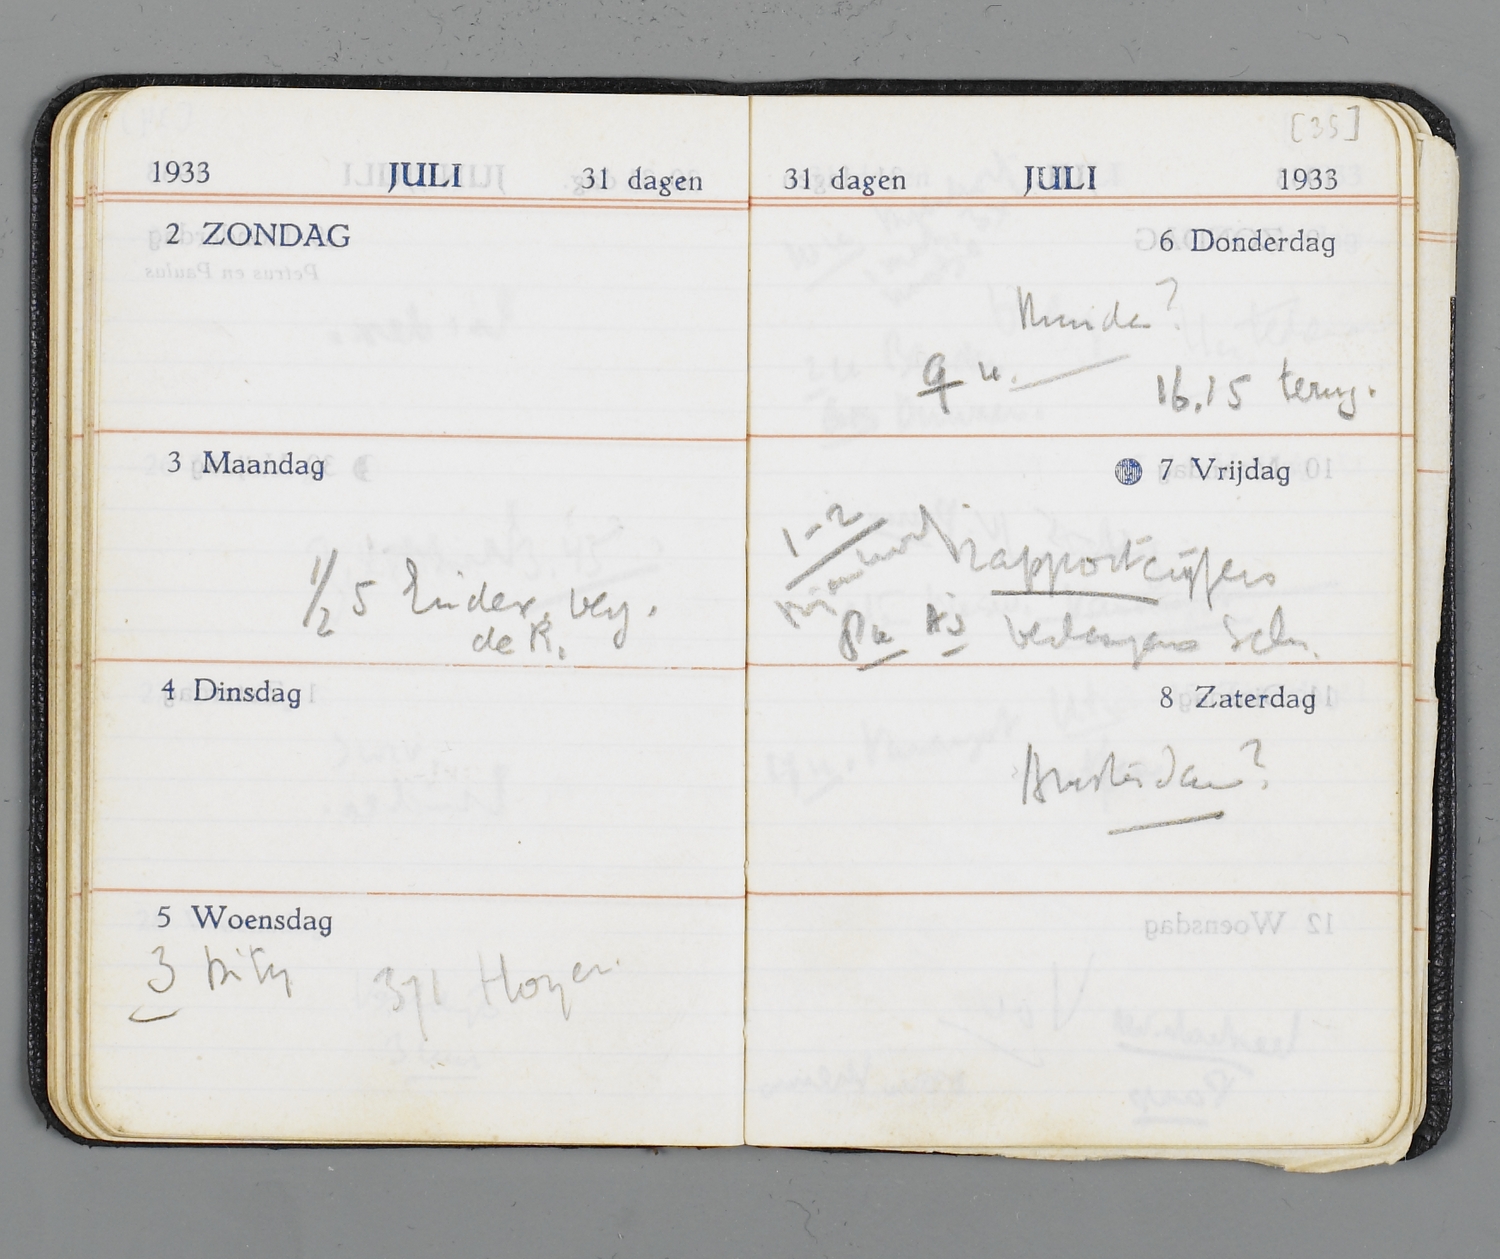 1933 JULI 31 dagen
2 ZONDAG
3 Maandag
1/2 5 Eindex. verg.
de R.
4 Dinsdag
5 Woensdag
3 Kitty
[35]
31 dagen JULI 1933
6 Donderdag
9 u. 16.15 terug.
7 Vrijdag
1-2 rapportcijfers
8 u
8 Zaterdag
Amsterdam?